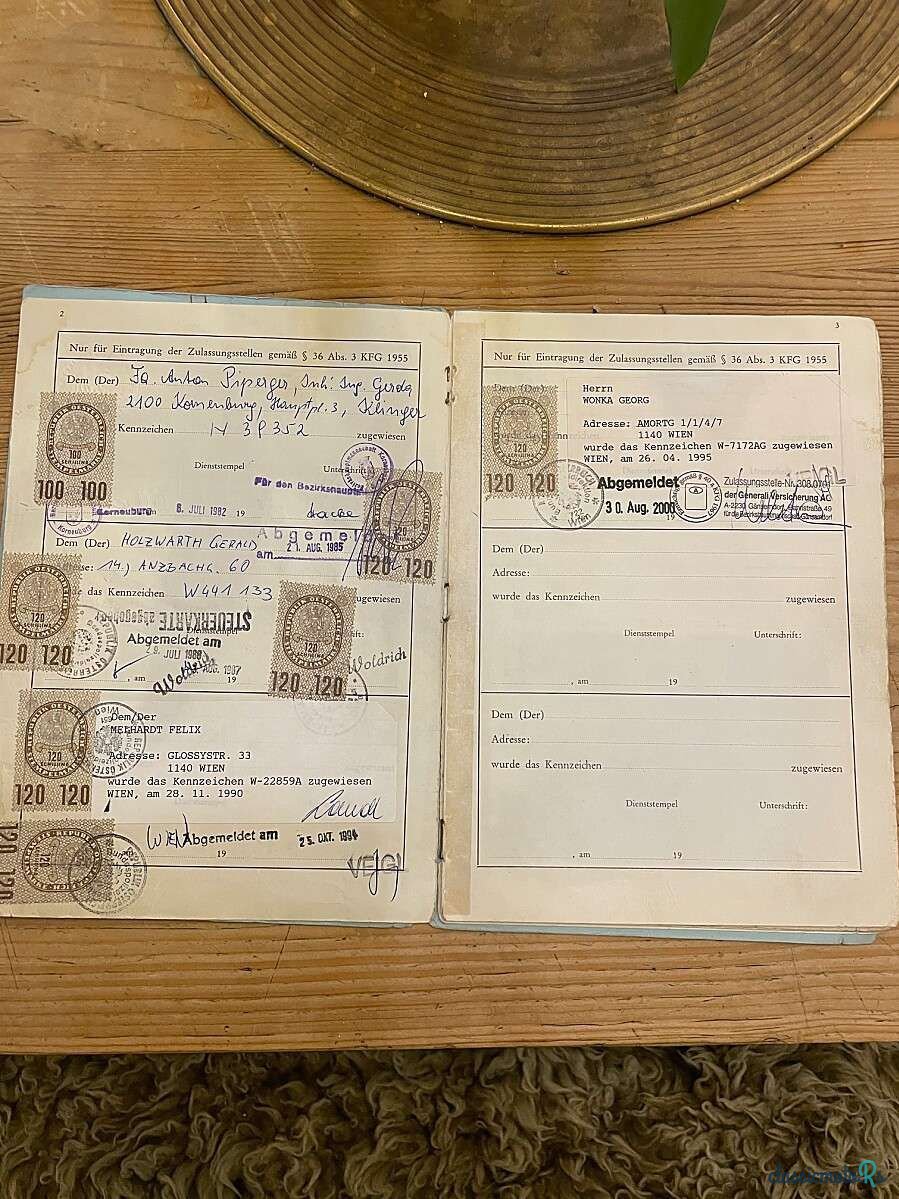 2
Nur für Eintragung der Zulassungsstellen gemäß § 36 Abs. 3 KFG 1955
Dem (Der) Fa. Anton Piperger, Inh: Ing. Gerda
2100 Korneuburg, Hauptpl. 3, Klinger
Kennzeichen N 38 352 zugewiesen
REPUBLIK ÖSTERREICH
100
SCHILLING
100 100
Dienststempel
Für den Bezirkshauptmann
Korneuburg
Korneuburg 6. JULI 1982 19
Abgemeldet
am 21. AUG. 1985
120 120
Dem (Der) HOLZWARTH GERALD
14., ANZBACHG. 60
das Kennzeichen W 441 133 zugewiesen
STEUERKARTE abgegeben
Dienststempel
Abgemeldet am
29. JULI 1988
120
120 120
, am 19
Woldrich
Woldrich
120
SCHILLING
120 120
Dem/Der
MELHARDT FELIX
Adresse: GLOSSYSTR. 33
1140 WIEN
wurde das Kennzeichen W-22859A zugewiesen
WIEN, am 28. 11. 1990
120
120 120
WIEN Abgemeldet am 25. OKT. 1994
19
VEIGL
120
3
Nur für Eintragung der Zulassungsstellen gemäß § 36 Abs. 3 KFG 1955
Dem (Der)
Herrn
WONKA GEORG
Adresse: AMORTG 1/1/4/7
1140 WIEN
wurde das Kennzeichen W-7172AG zugewiesen
WIEN, am 26. 04. 1995
120
120 120
Abgemeldet
30. Aug. 2000 19
Zulassungsstelle-Nr.
der Generali Versicherung AG
Dem (Der)
Adresse:
wurde das Kennzeichen zugewiesen
Dienststempel Unterschrift:
, am 19
Dem (Der)
Adresse:
wurde das Kennzeichen zugewiesen
Dienststempel Unterschrift:
, am 19